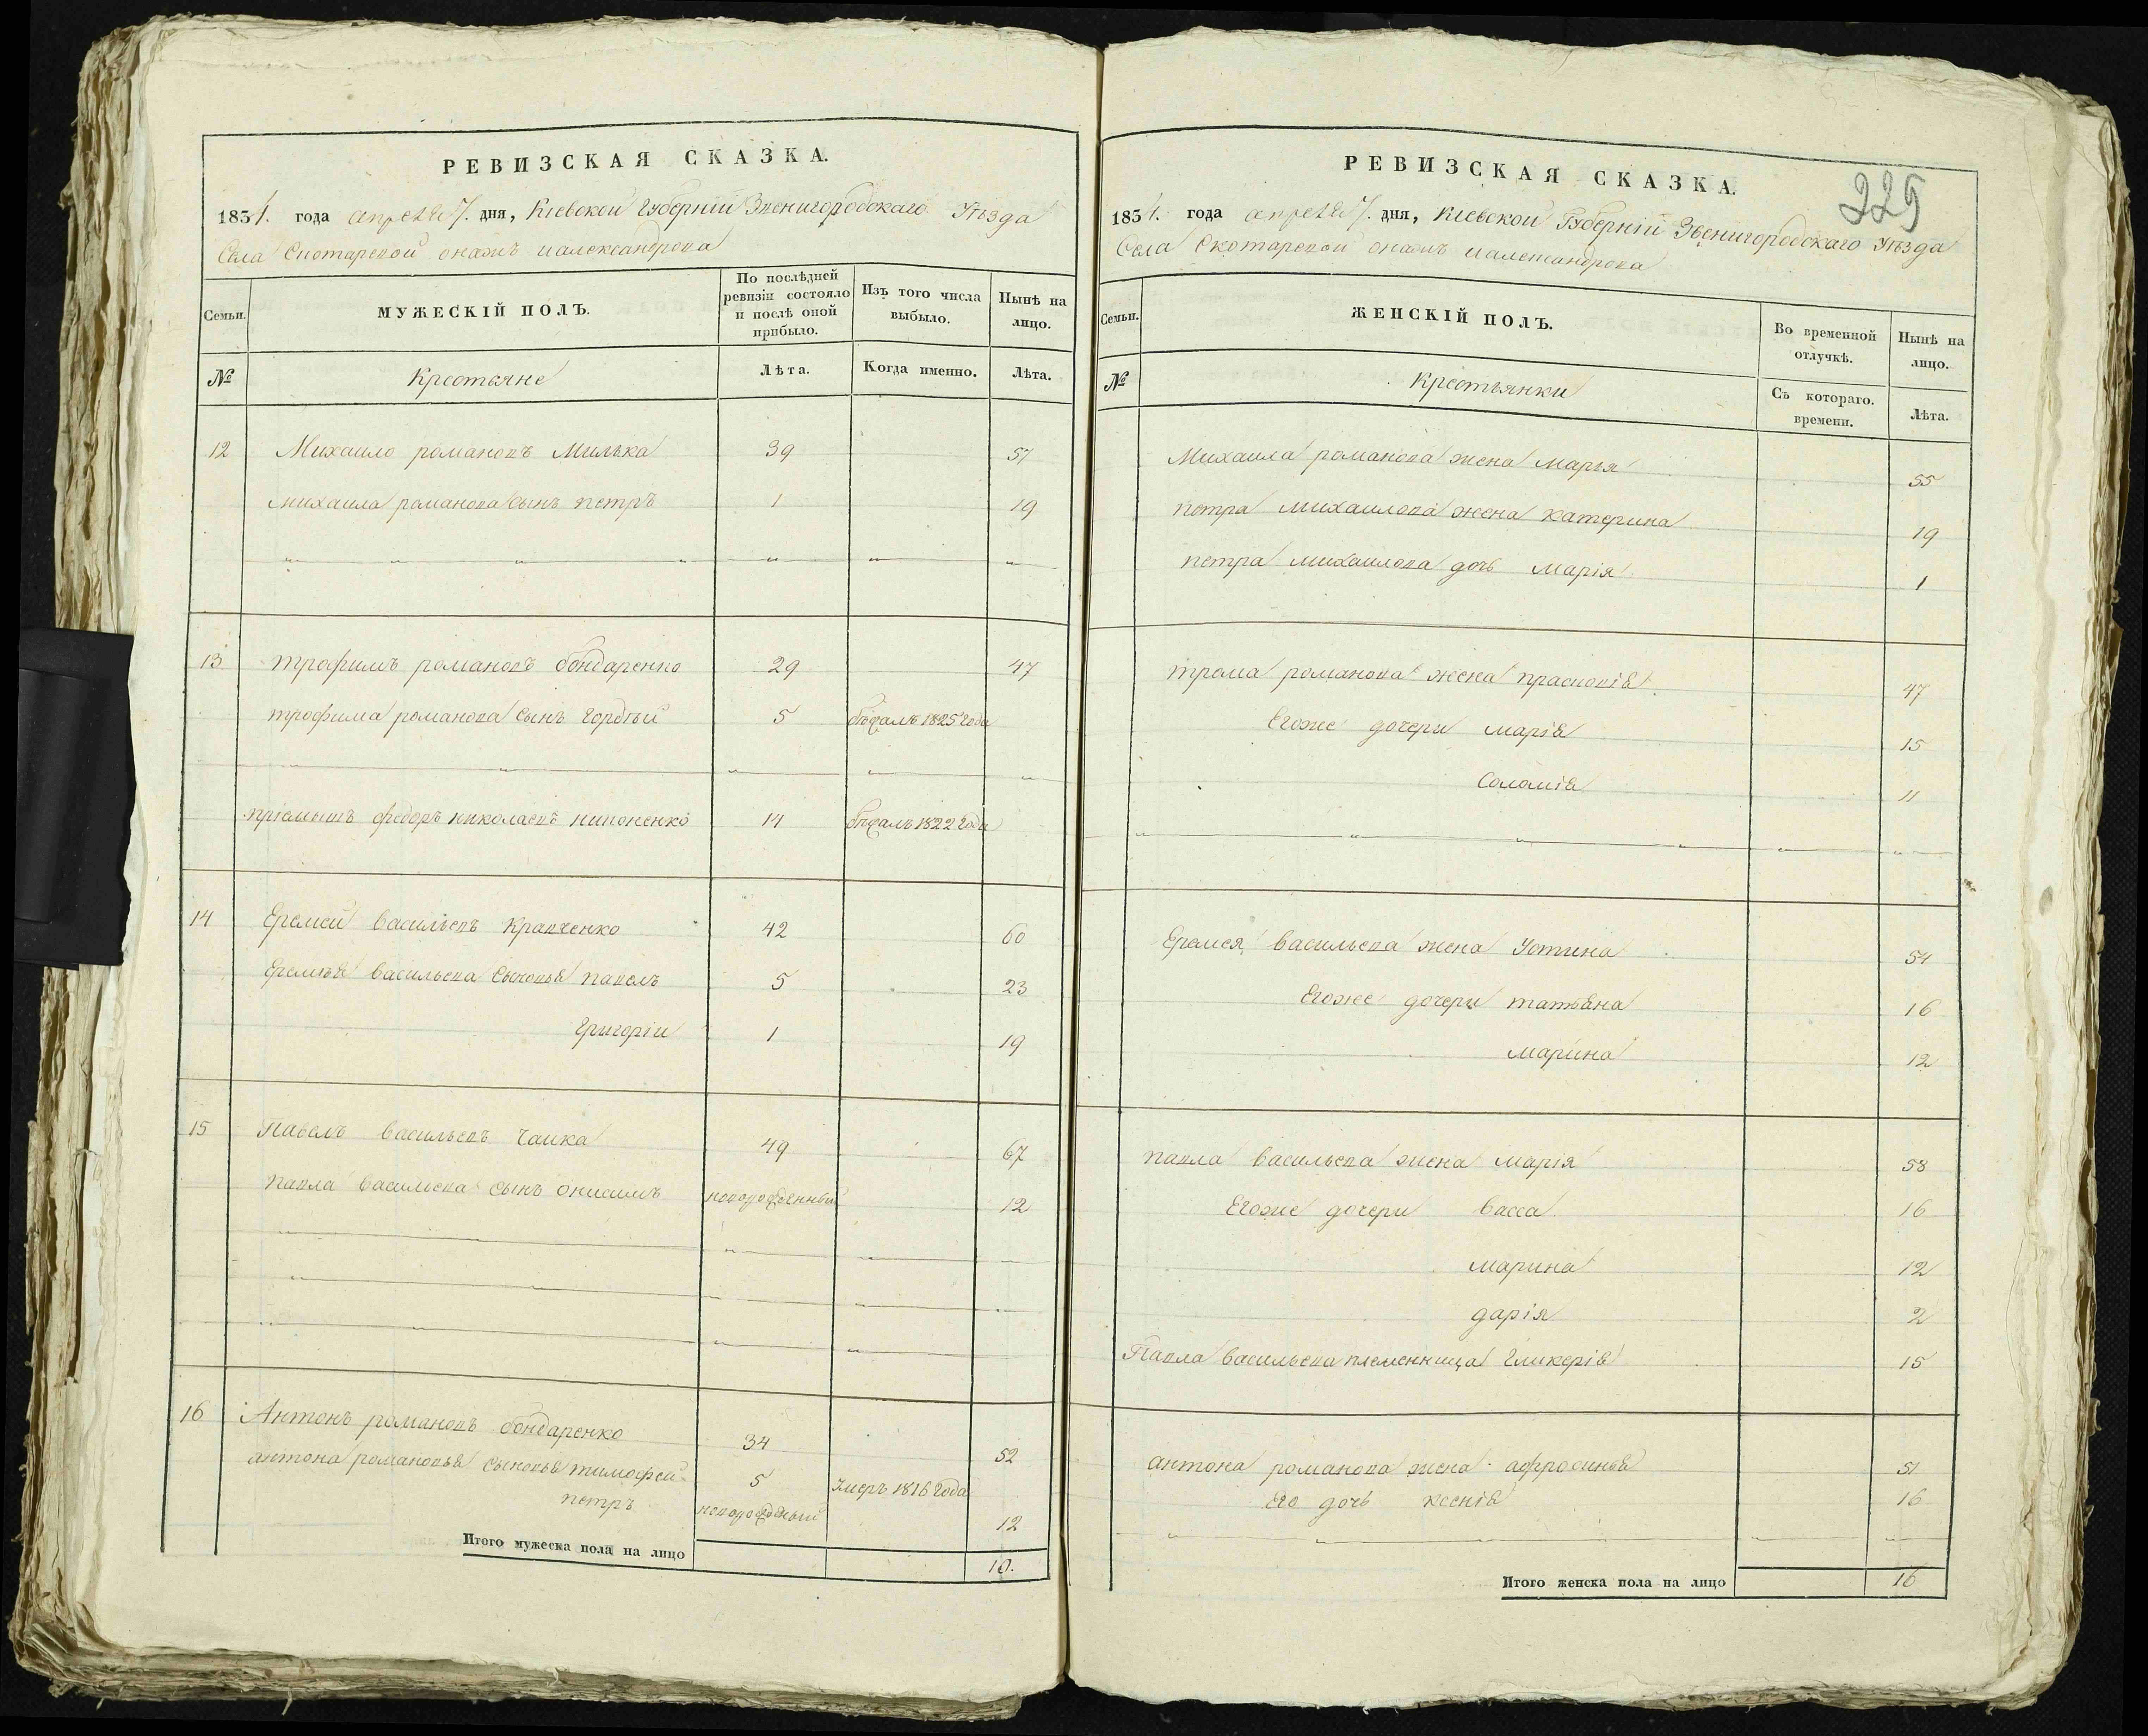 РЕВИЗСКАЯ СКАЗКА.
1834. года апреля 7. дня, Кіевской Губерніи Звенигородскаго Уѣзда
Села Скотаревой онажъ иалександрова
Семьи. МУЖЕСКІЙ ПОЛЪ. По послѣдней ревизіи состояло и послѣ оной прибыло. Изъ того числа выбыло. Нынѣ на лицо.
№ Крестьяне Лѣта. Когда именно. Лѣта.
12 Михаило романовъ Милька 39 57
михаила романова сынъ петръ 1 19
13 трофимъ романовъ бондаренко 29 47
трофима романова сынъ гордѣй 5 бѣжалъ 1825 года
пріемышъ федоръ николаевъ 14 бѣжалъ 1822 года
14 Еремей васильевъ кравченко 42 60
Еремѣя васильева сыновья павелъ 5 23
григорій 1 19
15 Павелъ васильевъ чайка 49 67
павла васильева сынъ онисимъ новорожденный 12
16 Антонъ романовъ бондаренко 34 52
антона романовья сыновья тимофей 5 умеръ 1816 года
петръ новорожденый 12
Итого мужеска пола на лицо 10.
РЕВИЗСКАЯ СКАЗКА.
229
1834. года апреля 7. дня, Кіевской Губерніи Звенигородскаго Уѣзда
Села Скотаревой онажъ иалександрова
Семьи. ЖЕНСКІЙ ПОЛЪ. Во временной отлучкѣ. Нынѣ на лицо.
№ Крестьянки Съ котораго. времени. Лѣта.
Михаила романова жена марья 55
петра михаилова жена катерина 19
петра михаилова дочь марія 1
романова жена прасковія 47
Егоже дочери марія 15
Соломія 11
Еремея васильева жена устина 54
Егоже дочери татьяна 16
марина 12
павла васильева жена марія 58
Егоже дочери васса 16
марина 12
дарія 2
Павла васильева племенница гликерія 15
антона романова жена афросинья 51
Его дочь ксенія 16
Итого женска пола на лицо 16